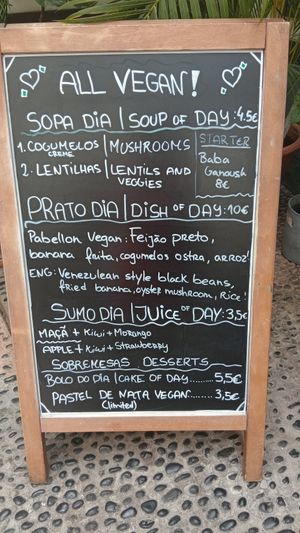 ALL VEGAN!
SOPA DIA | SOUP OF DAY: 4.5€
1. COGUMELOS | MUSHROOMS
CREME
2. LENTILHAS | LENTILS AND
VEGGIES
STARTER
Baba
Ganoush
8€
PRATO DIA | DISH OF DAY: 10€
Pabellon Vegan: Feijão preto,
banana frita, cogumelos ostra, arroz!
ENG: Venezulean style black beans,
fried banana, oyster mushroom, Rice!
SUMO DIA | JUICE OF DAY: 3,5€
MAÇÃ + Kiwi + Morango
APPLE + Kiwi + Strawberry
SOBREMESAS DESSERTS
BOLO DO DIA | CAKE OF DAY...... 5,5€
PASTEL DE NATA VEGAN....... 3,5€
(limited)